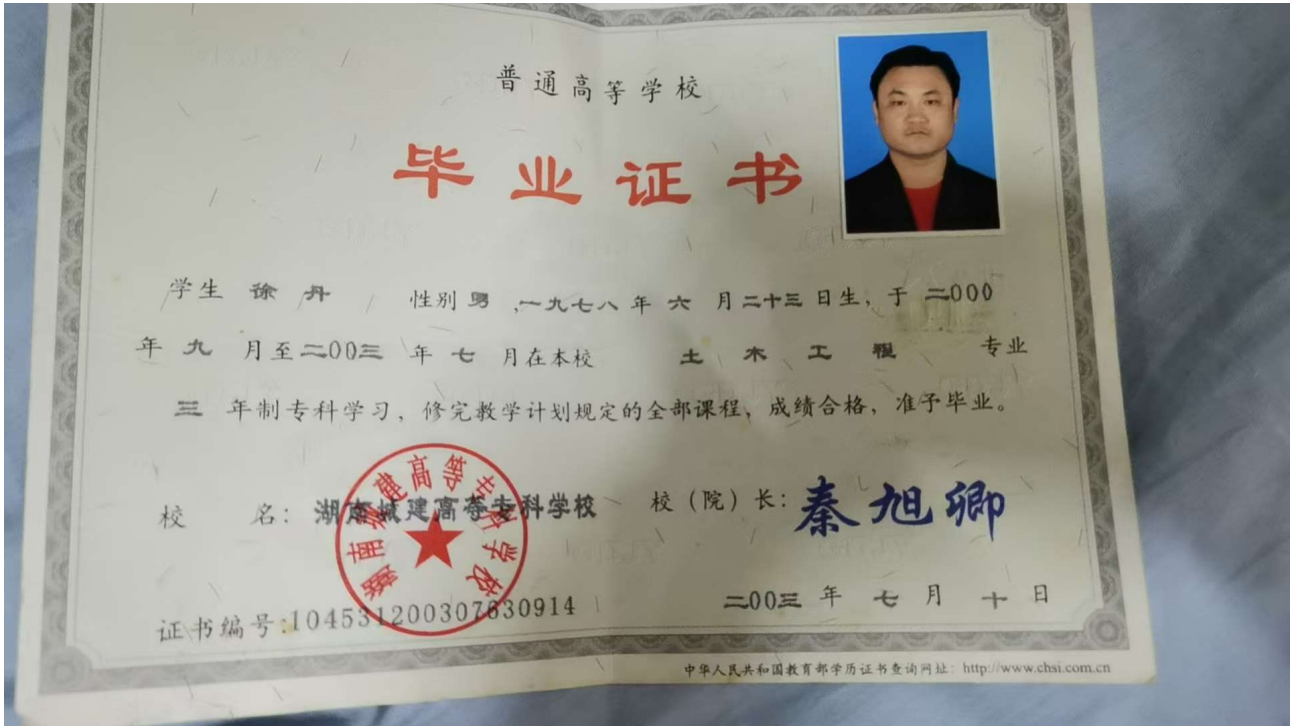 普通高等学校
毕业证书
学生 徐丹 性别 男 ,一九七八年 六 月二十三日生，于 二000
年 九 月至二00三 年 七 月在本校 土木工程 专业
三 年制专科学习，修完教学计划规定的全部课程，成绩合格，准予毕业。
校 名：湖南城建高等专科学校 校（院）长：秦旭卿
湖南城建高等专科学校
二00三 年 七 月 十 日
证书编号:104531200307630914
中华人民共和国教育部学历证书查询网址：http://www.chsi.com.cn